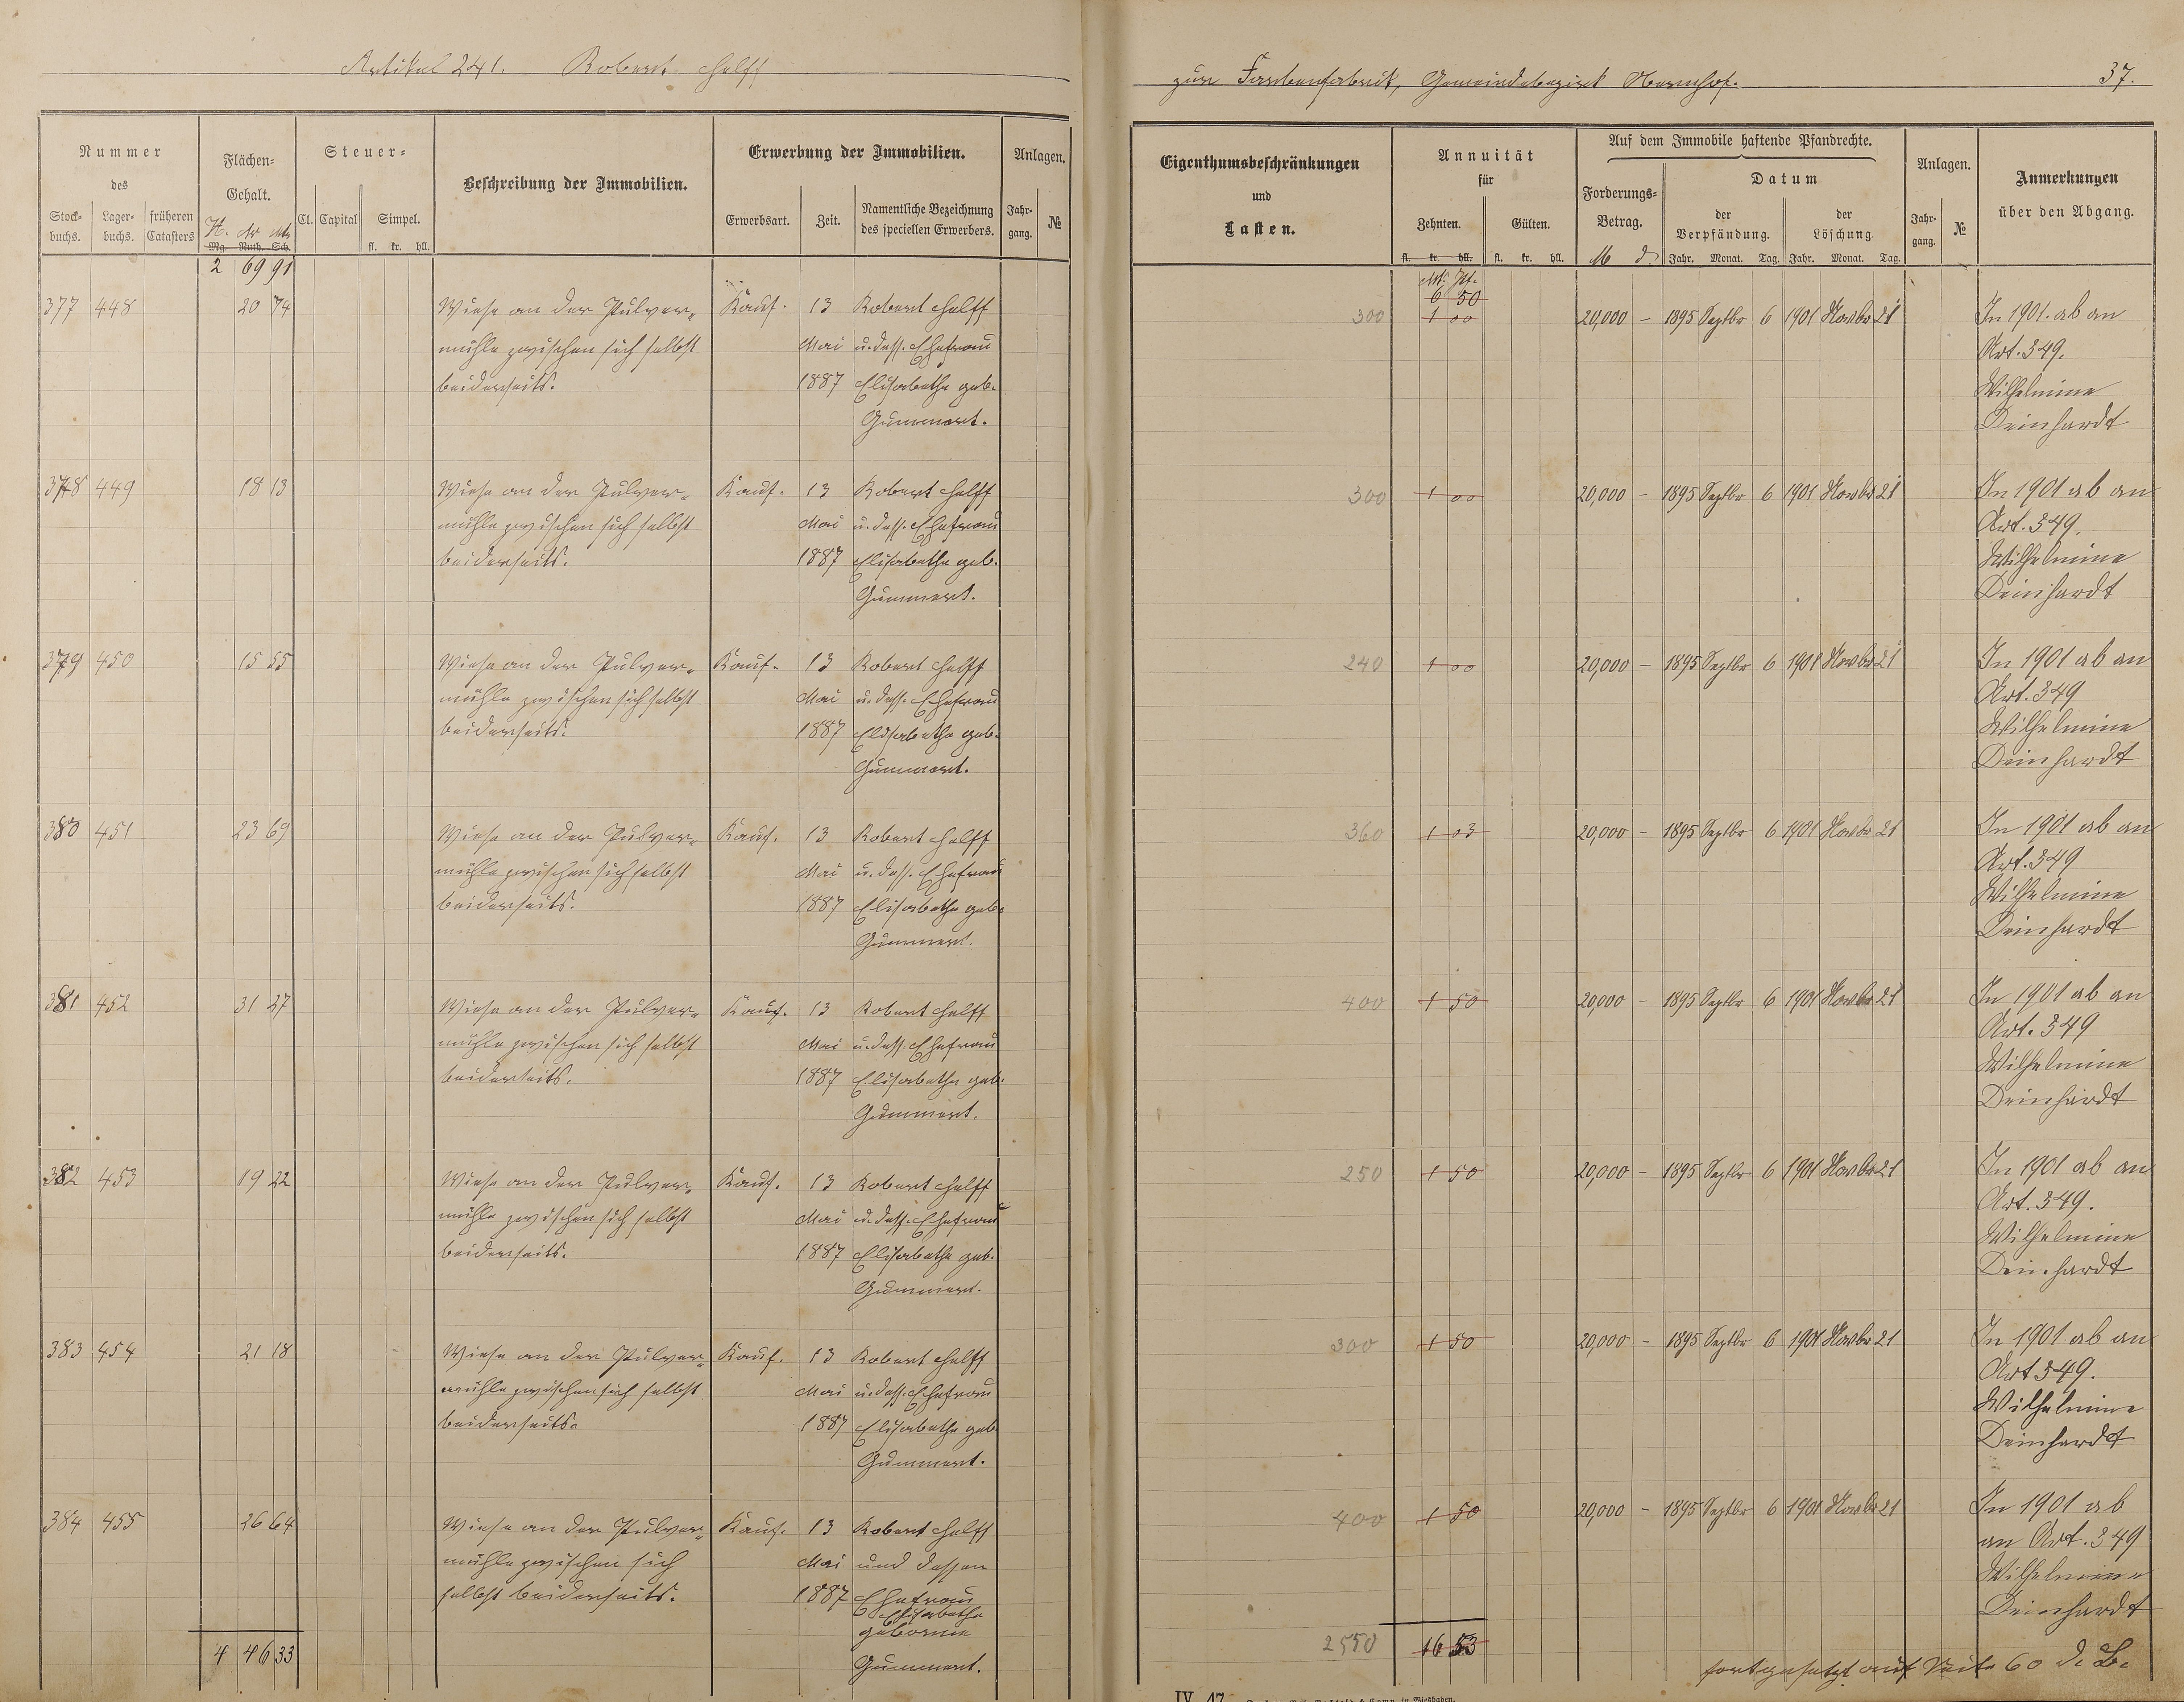 Artikel 241. Robert Helff
zur Farbenfabrik, Gemeindebezirk Obernhof. 37.
Nummer
des
Stock-
buchs.
Lager-
buchs.
früheren
Catasters
Flächen-
Gehalt.
H. Ar Mtr
Mg. Ruth. Sch.
Steuer-
Cl. Capital Simpel.
fl. kr. hll.
Beschreibung der Immobilien.
Erwerbung der Immobilien.
Erwerbsart. Zeit.
Namentliche Bezeichnung
des speciellen Erwerbers.
Anlagen.
Jahr-
gang.
№
Eigenthumsbeschränkungen
und
Lasten.
Annuität
für
Zehnten. Gülten.
fl. kr. hll. fl. kr. hll.
Auf dem Immobile haftende Pfandrechte.
Forderungs-
Betrag.
M d.
Datum
der
Verpfändung.
der
Löschung.
Jahr. Monat. Tag. Jahr. Monat. Tag.
Anlagen.
Jahr-
gang.
№
Anmerkungen
über den Abgang.
2 69 91
Mk. Pf.
6 50
377 448 20 74 Wiese an der Pulver- Kauf. 13 Robert Helff 300 1 00 20,000 – 1895 Septbr 6 1901 Novbr 21 In 1901. ab an
mühle zwischen sich selbst Mai u. dess. Ehefrau Art. 349.
beiderseits. 1887 Elisabethe geb. Wilhelmine
Gummert. Deinhardt
378 449 18 13 Wiese an der Pulver- Kauf. 13 Robert Helff 300 1 00 20,000 – 1895 Septbr 6 1901 Novbr 21 In 1901 ab an
mühle zwischen sich selbst Mai u. dess. Ehefrau Art. 349.
beiderseits. 1887 Elisabethe geb. Wilhelmine
Gummert. Deinhardt
379 450 15 55 Wiese an der Pulver- Kauf. 13 Robert Helff 240 1 00 20,000 – 1895 Septbr 6 1901 Novbr 21 In 1901 ab an
mühle zwischen sich selbst Mai u. dess. Ehefrau Art. 349
beiderseits. 1887 Elisabethe geb. Wilhelmine
Gummert. Deinhardt
380 451 23 69 Wiese an der Pulver- Kauf. 13 Robert Helff 360 1 03 20,000 – 1895 Septbr 6 1901 Novbr 21 In 1901 ab an
mühle zwischen sich selbst Mai u. dess. Ehefrau Art. 349
beiderseits. 1887 Elisabethe geb. Wilhelmine
Gummert. Deinhardt
381 452 31 27 Wiese an der Pulver- Kauf. 13 Robert Helff 400 1 50 20,000 – 1895 Septbr 6 1901 Novbr 21 In 1901 ab an
mühle zwischen sich selbst Mai u. dess. Ehefrau Art. 349
beiderseits. 1887 Elisabethe geb. Wilhelmine
Gummert. Deinhardt
382 453 19 22 Wiese an der Pulver- Kauf. 13 Robert Helff 250 1 50 20,000 – 1895 Septbr 6 1901 Novbr 21 In 1901 ab an
mühle zwischen sich selbst Mai u. dess. Ehefrau Art. 349.
beiderseits. 1887 Elisabethe geb. Wilhelmine
Gummert. Deinhardt
383 454 21 18 Wiese an der Pulver- Kauf. 13 Robert Helff 300 1 50 20,000 – 1895 Septbr 6 1901 Novbr 21 In 1901 ab an
mühle zwischen sich selbst Mai u. dess. Ehefrau Art 349.
beiderseits. 1887 Elisabethe geb. Wilhelmine
Gummert. Deinhardt
384 455 26 64 Wiese an der Pulver- Kauf. 13 Robert Helff 400 1 50 20,000 – 1895 Septbr 6 1901 Novbr 21 In 1901 ab
mühle zwischen sich Mai und dessen an Art. 349
selbst beiderseits. 1887 Ehefrau Wilhelmine
Elisabethe Deinhardt
geborene
Gummert.
4 46 33 2550 16 53
fortgesetzt auf Seite 60 d. B.
IV. 47.
& Comp. in Wiesbaden.